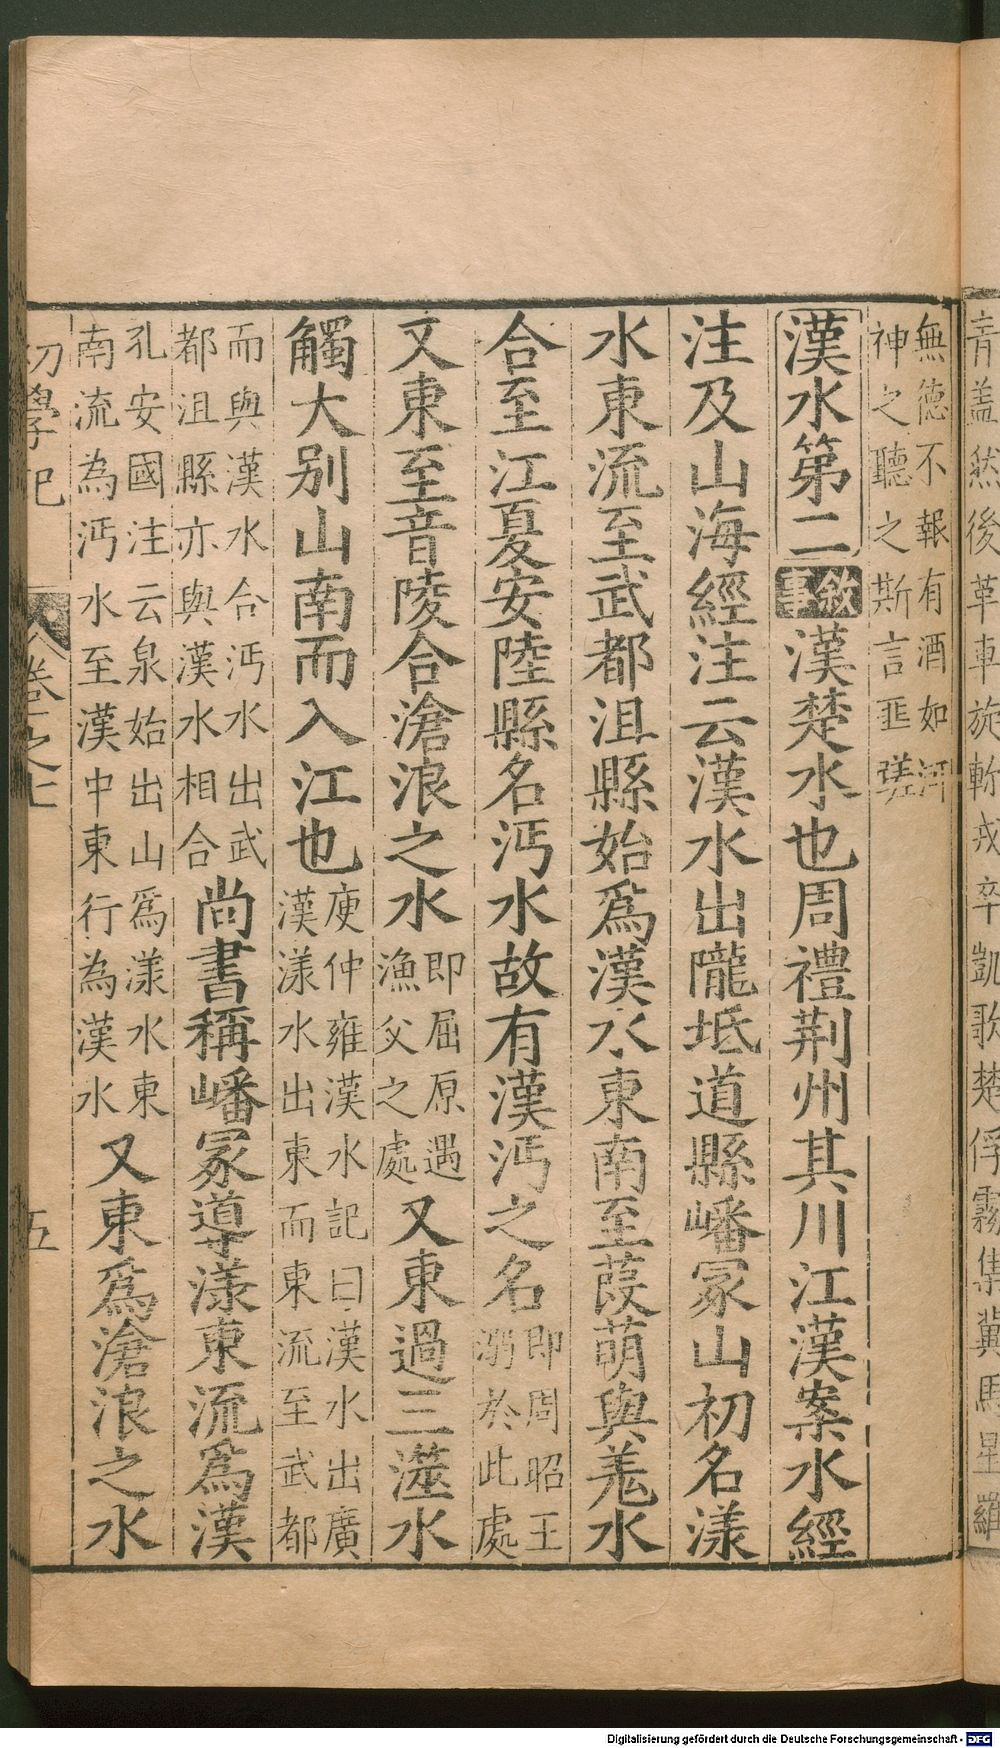 青蓋然後革車旋軫戎卒凱歌楚俘霧集冀馬星羅
無德不報有酒如河
神之聽之斯言匪瑳
漢水第二敘事漢楚水也周禮荆州其川江漢案水經
注及山海經注云漢水出隴坻道縣嶓冢山初名漾
水東流至武都沮縣始爲漢水東南至葭萌與羗水
合至江夏安陸縣名沔水故有漢沔之名即周昭王
溺於此處
又東至音陵合滄浪之水即屈原遇
漁父之處又東過三澨水
觸大别山南而入江也庾仲雍漢水記曰漢水出廣
漢漾水出東而東流至武都
而與漢水合沔水出武
都沮縣亦與漢水相合尚書稱嶓冢導漾東流爲漢
孔安國注云泉始出山爲漾水東
南流為沔水至漢中東行為漢水又東爲滄浪之水
初學記 卷之七 五
Digitalisierung gefördert durch die Deutsche Forschungsgemeinschaft - DFG